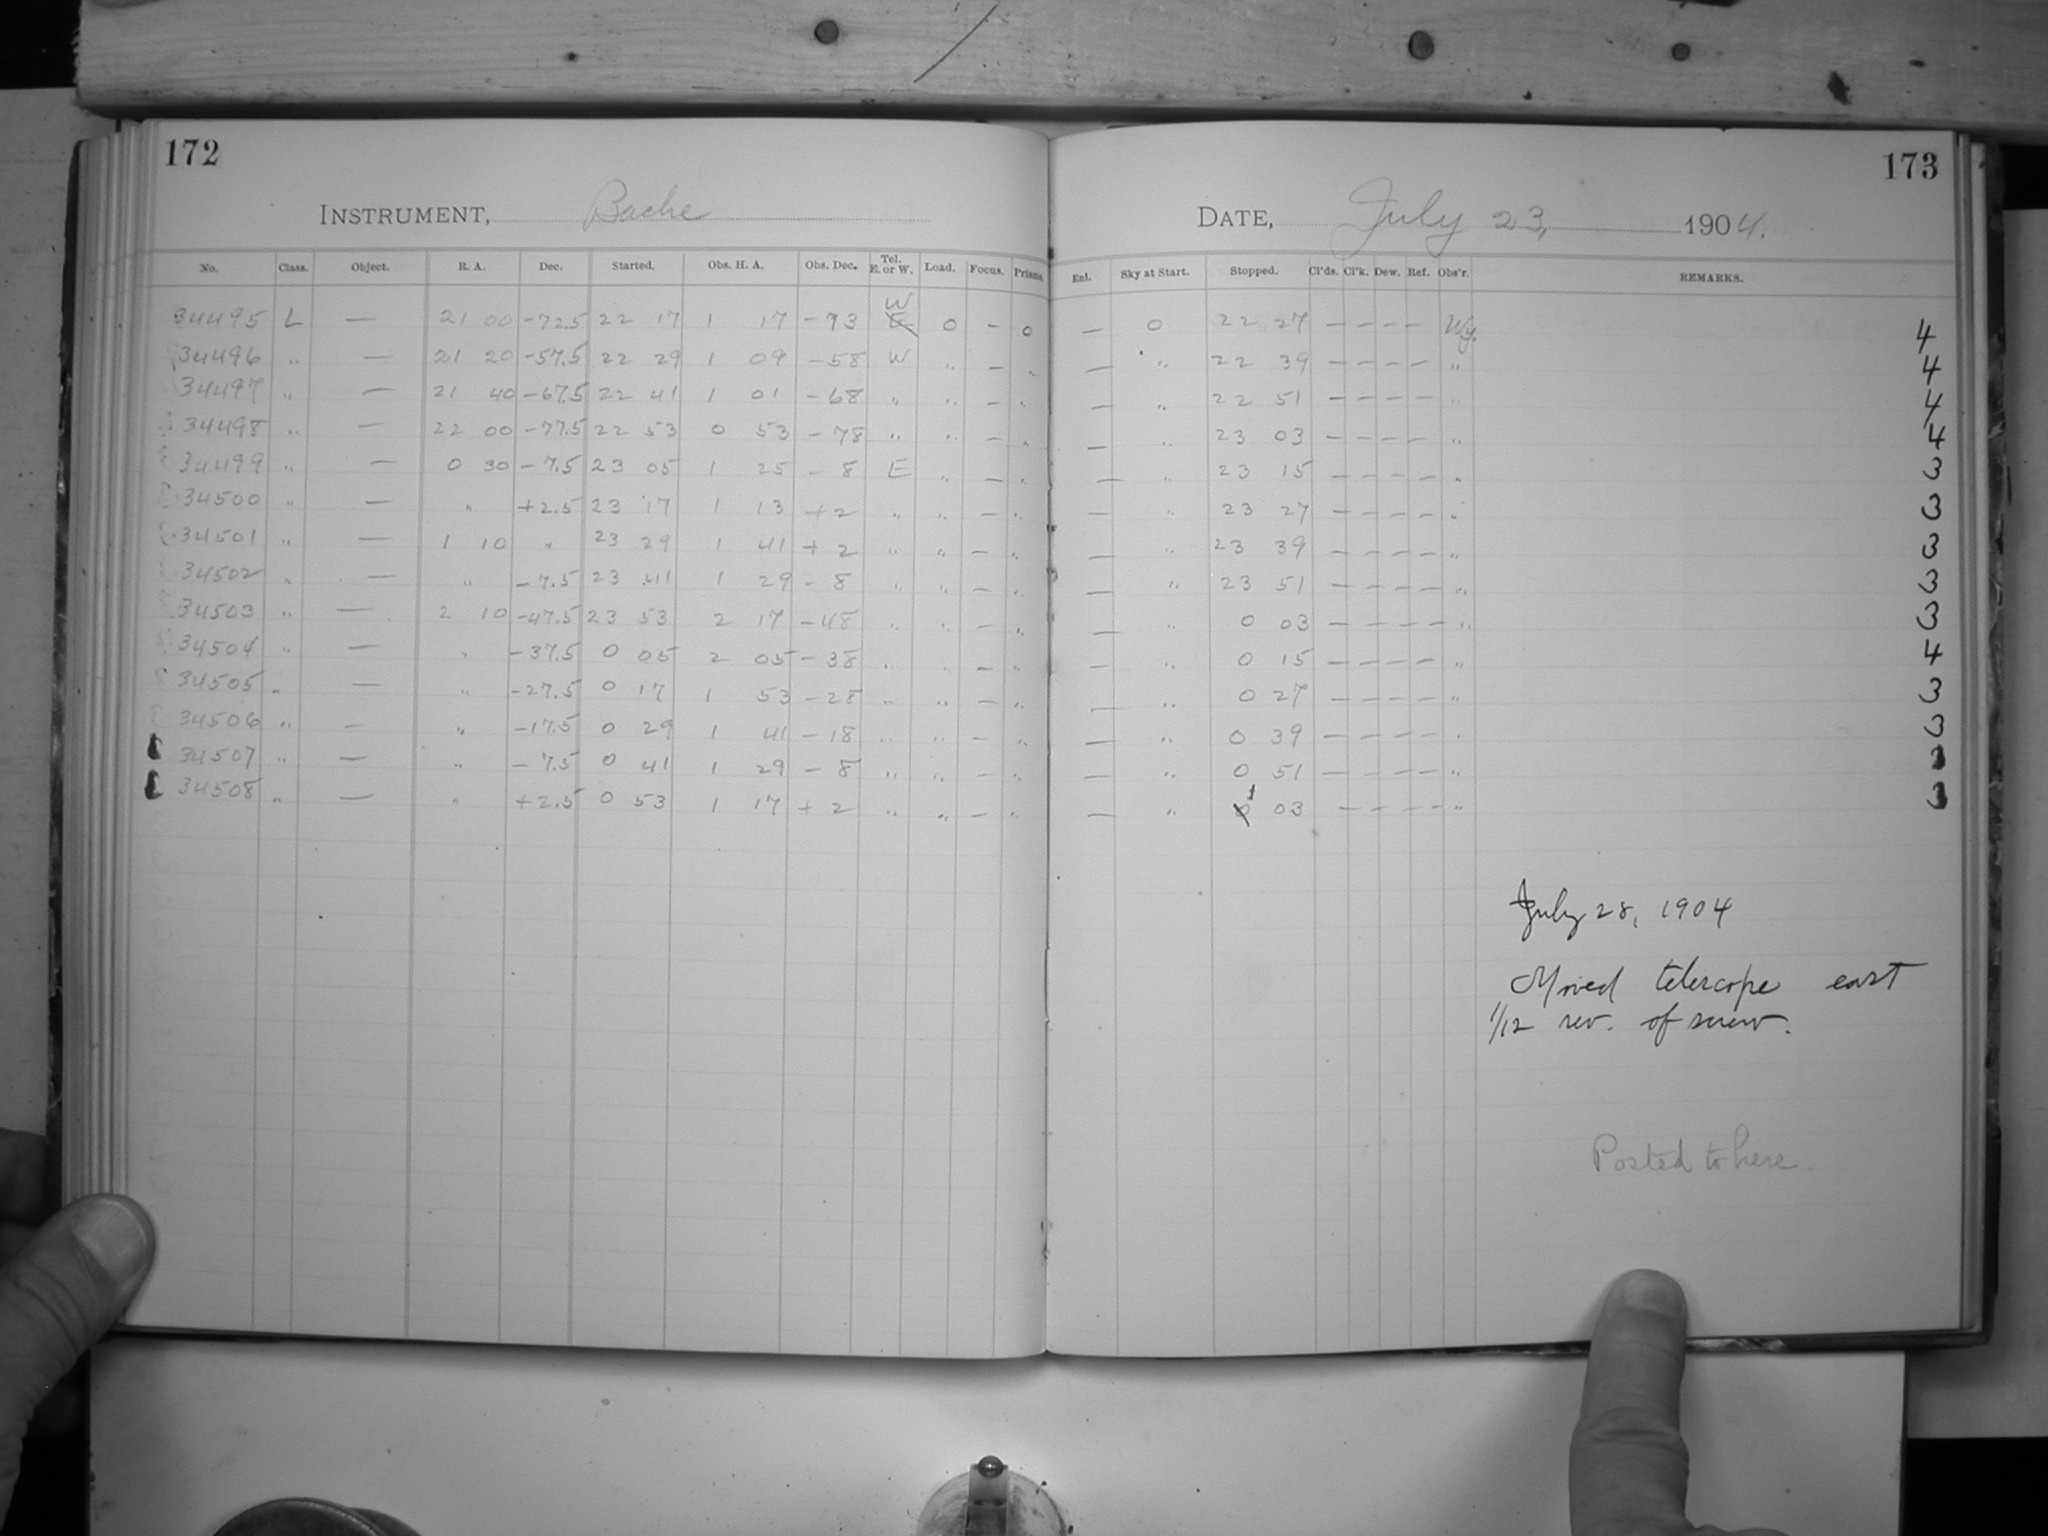 172
INSTRUMENT, Bache
No. Class. Object. R. A. Dec. Started. Obs. H. A. Obs. Dec. Tel. E. or W. Load. Focus. Prisms.
34495 L — 21 00 -72.5 22 17 1 17 -73 W E 0 — 0
34496 " — 21 20 -57.5 22 29 1 09 -58 W " — "
34497 " — 21 40 -67.5 22 41 1 01 -68 " " — "
34498 " — 22 00 -77.5 22 53 0 53 -78 " " — "
34499 " — 0 30 -7.5 23 05 1 25 -8 E " — "
34500 " — " +2.5 23 17 1 13 +2 " " — "
34501 " — 1 10 " 23 29 1 41 +2 " " — "
34502 " — " -7.5 23 41 1 29 -8 " " — "
34503 " — 2 10 -47.5 23 53 2 17 -48 " " — "
34504 " — " -37.5 0 05 2 05 -38 " " — "
34505 " — " -27.5 0 17 1 53 -28 " " — "
34506 " — " -17.5 0 29 1 41 -18 " " — "
34507 " — " -7.5 0 41 1 29 -8 " " — "
34508 " — " +2.5 0 53 1 17 +2 " " — "
173
DATE, July 23, 1904.
Enl. Sky at Start. Stopped. Cl'ds. Cl'k. Dew. Ref. Obs'r. REMARKS.
— 0 22 27 — — — — Wy. 4
— " 22 39 — — — — " 4
— " 22 51 — — — — " 4
— " 23 03 — — — — " 4
— " 23 15 — — — — " 3
— " 23 27 — — — — " 3
— " 23 39 — — — — " 3
— " 23 51 — — — — " 3
— " 0 03 — — — — " 3
— " 0 15 — — — — " 4
— " 0 27 — — — — " 3
— " 0 39 — — — — " 3
— " 0 51 — — — — " 3
— " 1 03 — — — — " 3
July 28, 1904
Moved telescope east
1/12 rev. of screw.
Posted to here.